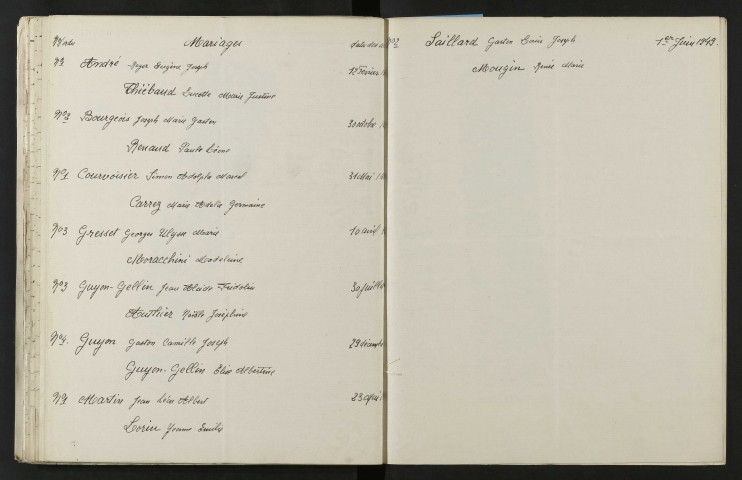 Mariages
André Roger Eugène Joseph 12 Février
Thiébaud Lucette Marie Justine
Bourgeois Joseph Marie Gaston 3 octobre
Renaud Paule
Courvoisier Simon Adolphe Marcel 31 Mai
Carrez Marie Adèle Germaine
No 3 Gresset Georges Ulysse Marie 10 avril
Moracchini Madeleine
No 3 Guyon-Gellin Jean Alcide Fridolin 30 juillet
Authier Noële Joséphine
No 4. Guyon Gaston Camille Joseph 29 décembre
Guyon-Gellin Elise Albertine
Martin Jean Léon Albert 23 avril
Lorin Yvonne Emilie
Saillard Gaston Louis Joseph 1er Juin 1949.
Mougin Renée Marie